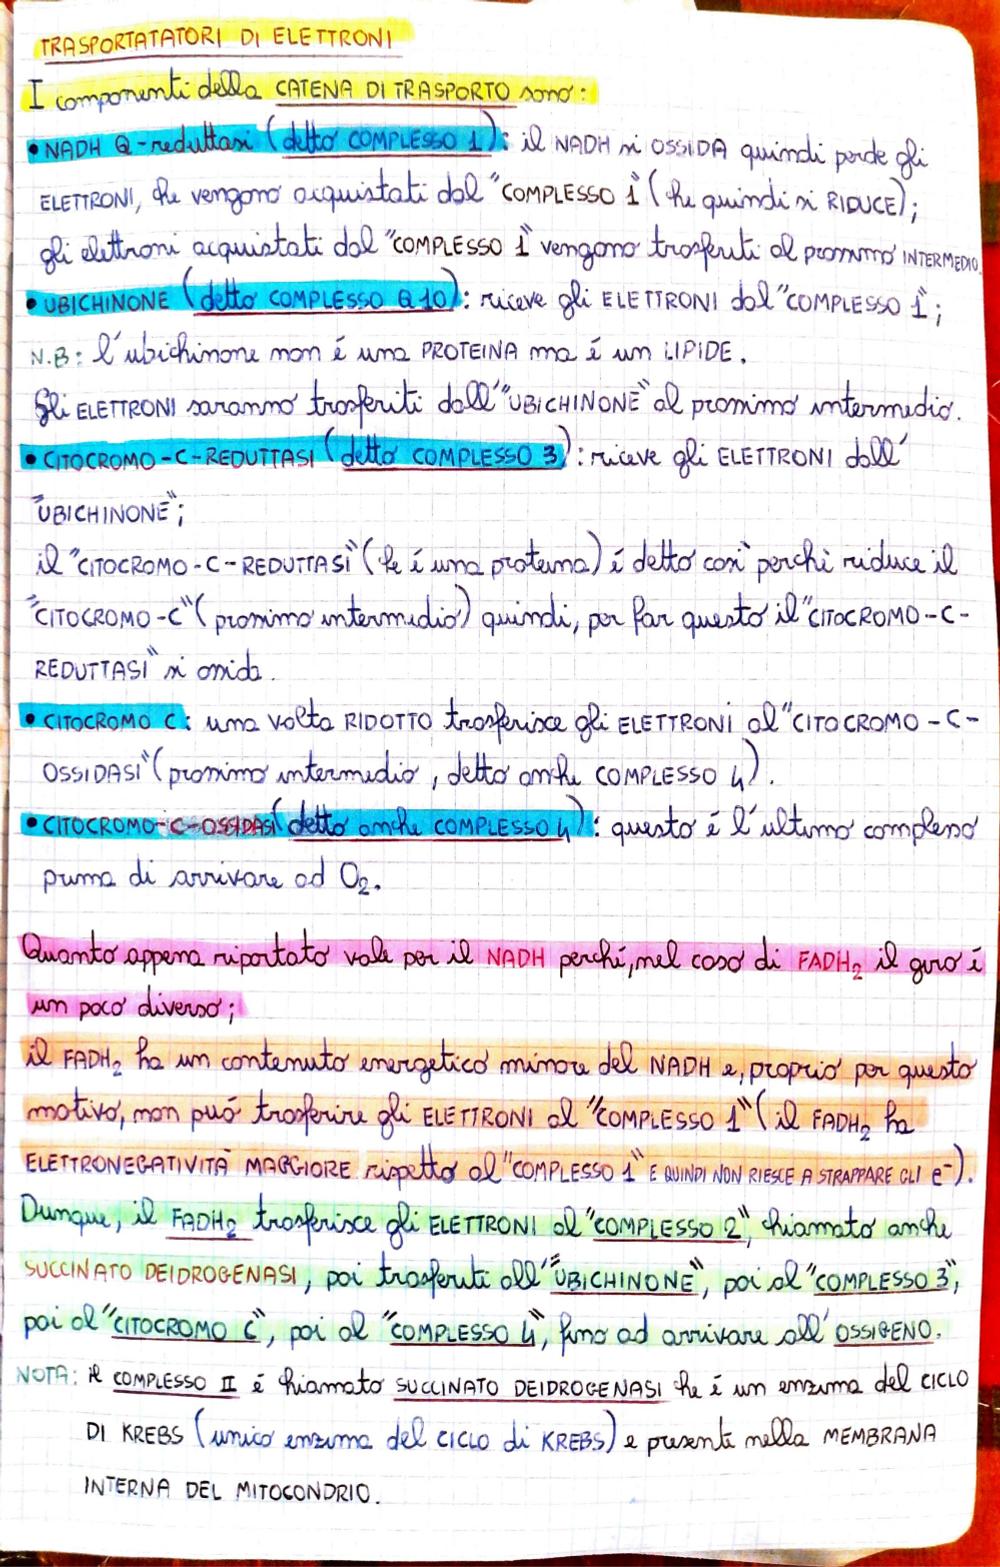 TRASPORTATATORI DI ELETTRONI
I componenti della CATENA DI TRASPORTO sono:
• NADH Q-reduttasi (detto COMPLESSO 1): il NADH si OSSIDA quindi perde gli
ELETTRONI, che vengono acquistati dal "COMPLESSO 1" (che quindi si RIDUCE);
gli elettroni acquistati dal "COMPLESSO 1" vengono trasferiti al prossimo INTERMEDIO.
• UBICHINONE (detto COMPLESSO Q10): riceve gli ELETTRONI dal "COMPLESSO 1";
N.B: l'ubichinone non é una PROTEINA ma é un LIPIDE.
Gli ELETTRONI saranno trasferiti dall'"UBICHINONE" al prossimo intermedio.
• CITOCROMO-C-REDUTTASI (detto COMPLESSO 3): riceve gli ELETTRONI dall'
"UBICHINONE";
il "CITOCROMO-C-REDUTTASI" (che é una proteina) é detto così perché riduce il
"CITOCROMO-C" (prossimo intermedio) quindi, per far questo il "CITOCROMO-C-
REDUTTASI" si ossida.
• CITOCROMO C: una volta RIDOTTO trasferisce gli ELETTRONI al "CITOCROMO-C-
OSSIDASI" (prossimo intermedio, detto anche COMPLESSO 4).
• CITOCROMO-C-OSSIDASI (detto anche COMPLESSO 4): questo é l'ultimo complesso
prima di arrivare ad O₂.
Quanto appena riportato vale per il NADH perché, nel caso di FADH₂ il giro é
un poco diverso;
il FADH₂ ha un contenuto energetico minore del NADH e, proprio per questo
motivo, non può trasferire gli ELETTRONI al "COMPLESSO 1" (il FADH₂ ha
ELETTRONEGATIVITÀ MAGGIORE rispetto al "COMPLESSO 1" E QUINDI NON RIESCE A STRAPPARE GLI e⁻).
Dunque, il FADH₂ trasferisce gli ELETTRONI al "COMPLESSO 2", chiamato anche
SUCCINATO DEIDROGENASI, poi trasferiti all'"UBICHINONE", poi al "COMPLESSO 3",
poi al "CITOCROMO C", poi al "COMPLESSO 4", fino ad arrivare all'OSSIGENO.
NOTA: il COMPLESSO II é chiamato SUCCINATO DEIDROGENASI che é un enzima del CICLO
DI KREBS (unico enzima del CICLO di KREBS) e presente nella MEMBRANA
INTERNA DEL MITOCONDRIO.